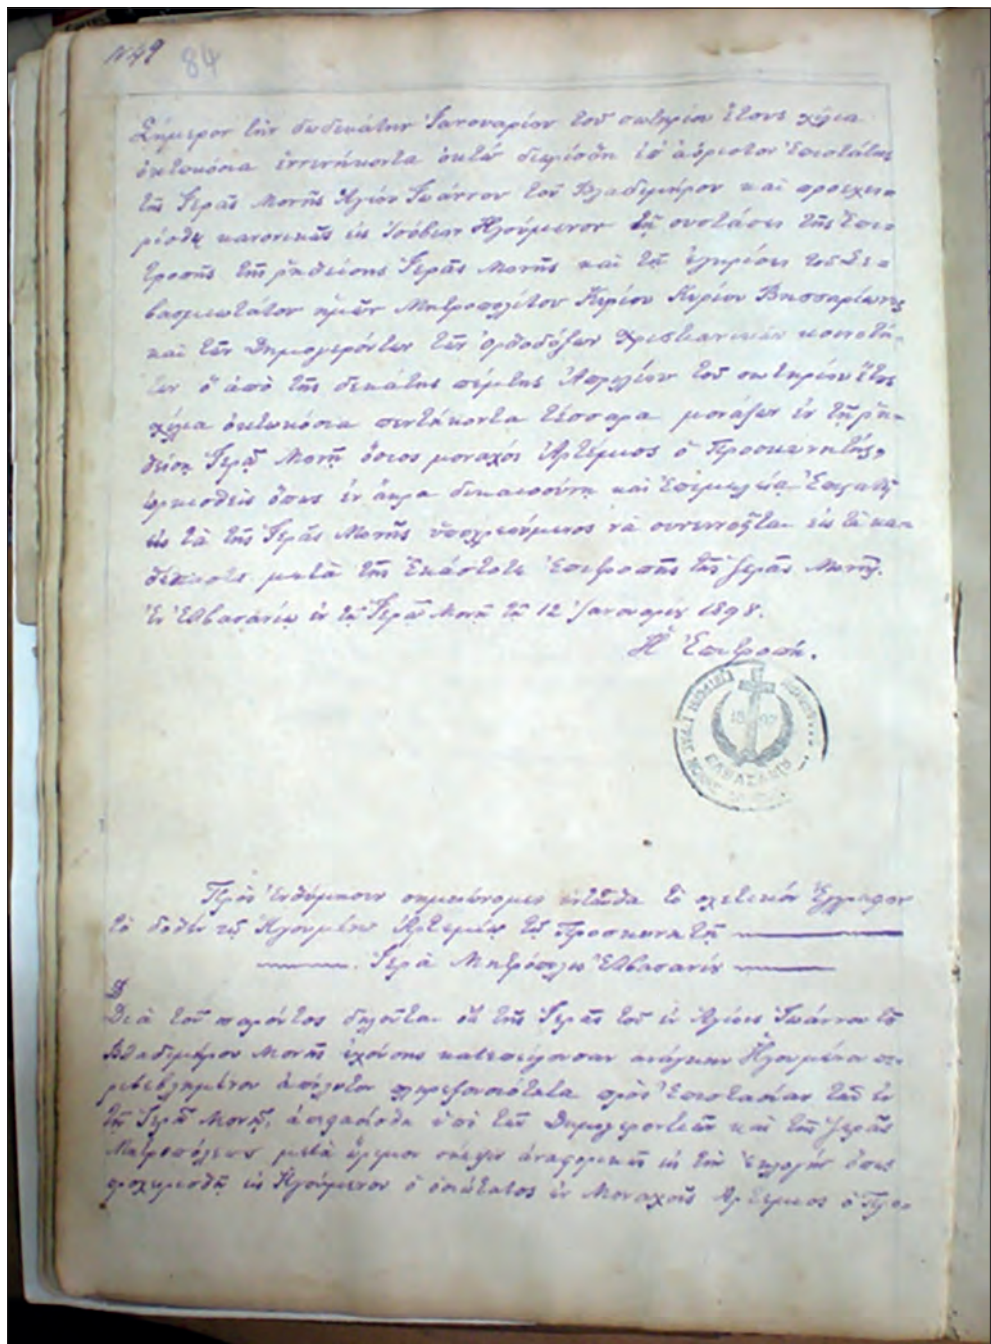 N 49 84
Σήμερον τὴν δωδεκάτην Ἰανουαρίου τοῦ σωτηρίου ἔτους χίλια
ὀκτακόσια ἐννενήκοντα ὀκτώ διωρίσθη ἐπ' ἀόριστον Ἐπιστάτης
τῆς Ἱερᾶς Μονῆς Ἁγίου Ἰωάννου τοῦ Βλαδιμήρου καὶ προεχει-
ρίσθη κανονικῶς εἰς Ἡγούμενον τῇ συστάσει τῆς Ἐπι-
τροπῆς τῆς ῥηθείσης Ἱερᾶς Μονῆς καὶ τῇ ἐγκρίσει τοῦ Σε-
βασμιωτάτου ἡμῶν Μητροπολίτου Κυρίου Κυρίου Βησσαρίωνος
καὶ τῶν Δημογερόντων τῶν ὀρθοδόξων Χριστιανικῶν κοινοτή-
των ὁ ἀπὸ τῆς δεκάτης πέμπτης Ἀπριλίου τοῦ σωτηρίου ἔτους
χίλια ὀκτωκόσια πεντήκοντα τέσσαρα μονάζων ἐν τῇ ῥη-
θείσῃ Ἱερᾷ Μονῇ ὅσιος μοναχός Ἀρτέμιος ὁ Προσκυνητής,
ὁρκισθεὶς ὅπως ἐν ἄκρᾳ δικαιοσύνῃ καὶ ἐπιμελείᾳ Ἐπιστατῇ
εἰς τὰ τῆς Ἱερᾶς Μονῆς ὑποχρεούμενος νὰ συνεννοῆται εἰς τὰ κα-
θέκαστα μετὰ τῆς ἑκάστοτε Ἐπιτροπῆς τῆς Ἱερᾶς Μονῆς.
Ἐν Ἐλβασανίῳ ἐν τῇ Ἱερᾷ Μονῇ τῇ 12 Ἰανουαρίου 1898.
Ἡ Ἐπιτροπή.
18 97
ΕΛΒΑΣΑΝΙΩ
Πρὸς ἐνθύμησιν σημειώνομεν ἐνταῦθα τὸ σχετικὸν ἔγγραφον
τὸ δοθὲν τῷ Ἡγουμένῳ Ἀρτεμίῳ τῷ Προσκυνητῇ
Ἱερὰ Μητρόπολις Ἐλβασανίου
Διὰ τοῦ παρόντος δηλοῦται ὅτι τῆς Ἱερᾶς τοῦ ἐν Ἁγίοις Ἰωάννου τοῦ
Βλαδιμήρου Μονῆς ἐχούσης κατεπείγουσαν ἀνάγκην Ἡγουμένου πε-
ριβεβλημένου ἀπόλυτον πληρεξουσιότητα πρὸς Ἐπιστασίαν τῶν ἐν
τῇ Ἱερᾷ Μονῇ, ὑπὸ τῶν Δημογερόντων καὶ τῆς Ἱερᾶς
Μητροπόλεως μετὰ ὥριμον σκέψιν ἀναφορικῶς εἰς τὴν ἐκλογὴν ὅπως
προχειρισθῇ εἰς Ἡγούμενον ὁ ὁσιώτατος ἐν Μοναχοῖς Ἀρτέμιος ὁ Προσ-